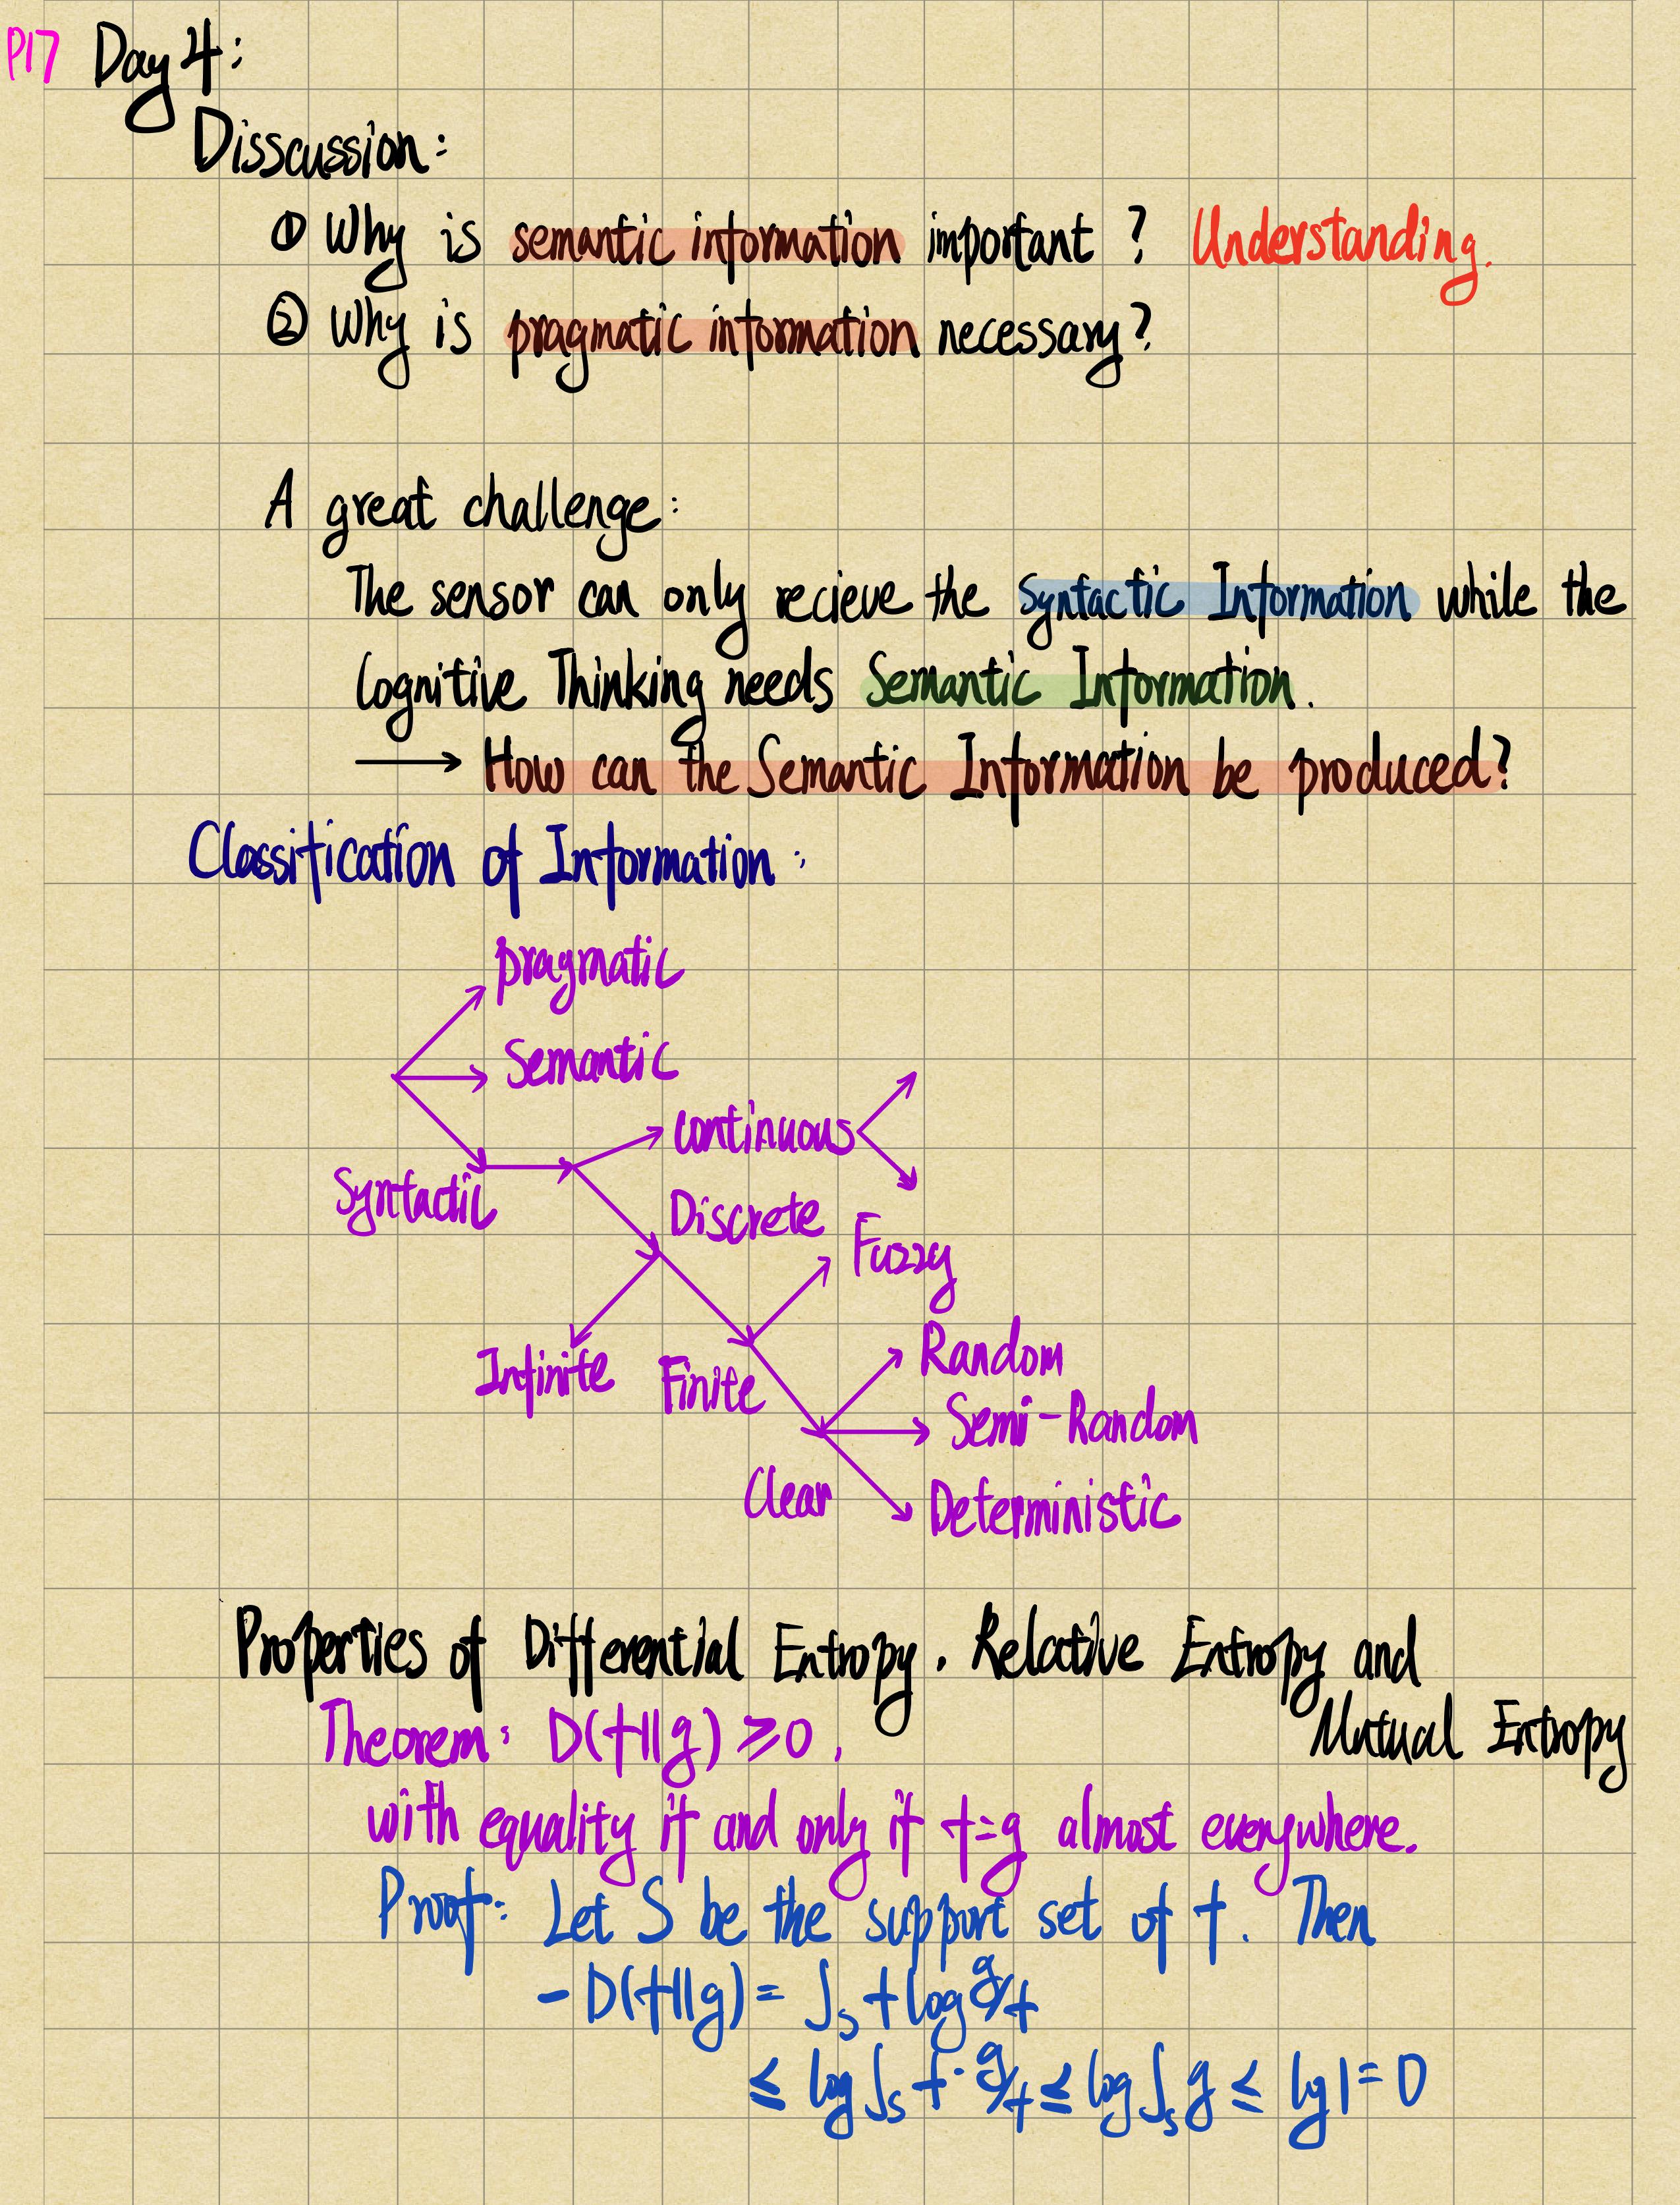 P17 Day 4:
Disscussion:
① Why is semantic information important? Understanding.
② Why is pragmatic information necessary?
A great challenge:
The sensor can only recieve the Syntactic Information while the
Cognitive Thinking needs Semantic Information.
→ How can the Semantic Information be produced?
Classification of Information:
pragmatic
Semantic
continuous
Syntactic
Discrete
Fuzzy
Infinite
Finite
Random
Semi-Random
Clear
Deterministic
Properties of Differential Entropy. Relative Entropy and
Mutual Entropy
Theorem: D(f||g) ≥ 0,
with equality if and only if f=g almost everywhere.
Proof: Let S be the support set of f. Then
-D(f||g) = ∫s f log g/f
≤ log ∫s f · g/f ≤ log ∫s g ≤ lg 1 = 0